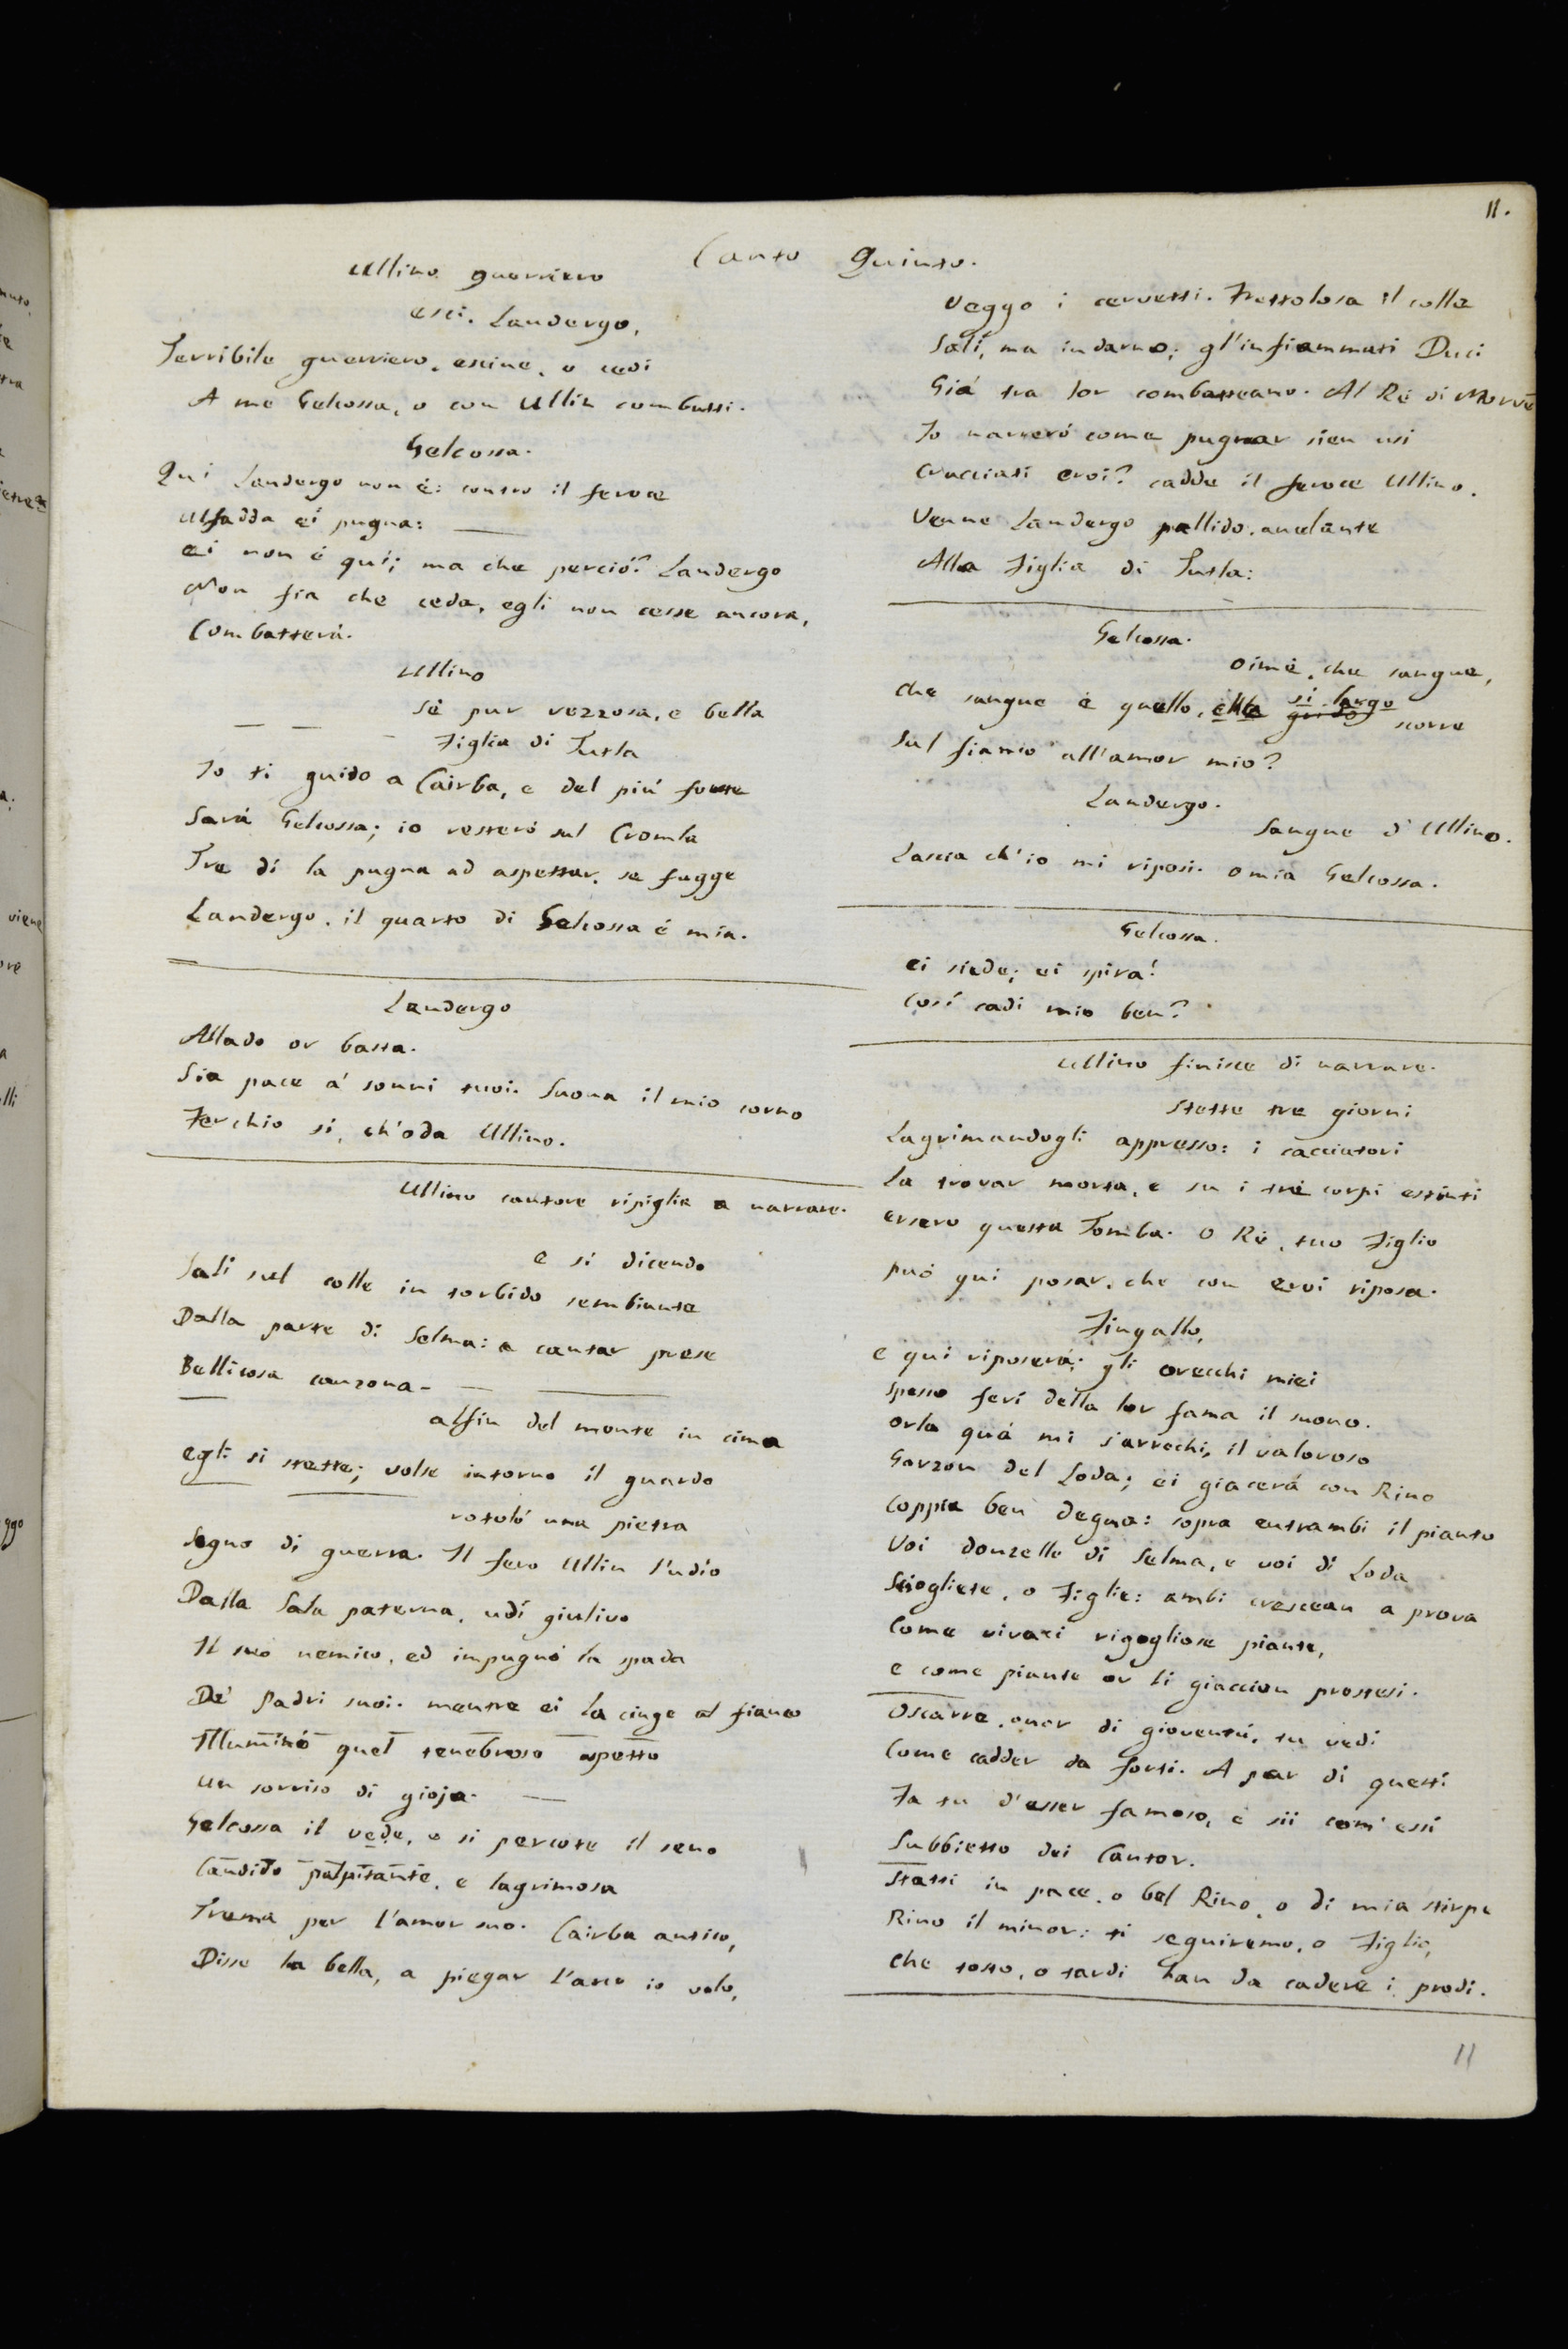 11.
Canto Quinto.
Ullino guerriero
esci. Landergo,
Terribile guerriero, escine, o cedi
A me Gelcossa, o con Ullin combatti.
Gelcossa.
Qui Landergo non è: contro il feroce
Ulfadda ei pugna: —
ei non è quì; ma che perciò? Landergo
Non fia che ceda, egli non cesse ancora,
Combatterà.
Ullino
— — - Sè pur vezzosa, e bella
Figlia di Tutla
Io ti guido a Cairba, e del più forte
Sarà Gelcossa; io resterò sul Cromla
Tre dì la pugna ad aspettar, se fugge
Landergo, il quarto dì Gelcossa è mia.
Landergo
Allado or basta.
Sia pace a' sonni tuoi. Suona il mio corno
Ferchio sì, ch'oda Ullino.
Ullino cantore ripiglia a narrare.
e sì dicendo
Salì sul colle in torbido sembiante
Dalla parte di Selma: a cantar prese
Bellicosa canzona - — —
alfin del monte in cima
egli si stette; volse intorno il guardo
— — rotolò una pietra
Segno di guerra. Il fero Ullin l'udìo
Dalla Sala paterna, udì giulivo
Il suo nemico, ed impugnò la spada
De' Padri suoi. mentre ei la cinge al fianco
Illuminò quel tenebroso aspetto
un sorriso di gioja. —
Gelcossa il vede, e si percote il seno
Candido palpitante, e lagrimosa
Trema per l'amor suo. Cairba antico,
Disse la bella, a piegar l'arco io volo,
Veggo i cervetti. Frettolosa il colle
Salì, ma indarno; gl'infiammati Duci
Già tra lor combatteano. Al Rè di Morvē
Io narrerò come pugnar sien usi
Crucciati eroi? cadde il feroce Ullino.
Venne Landergo pallido, anelante
Alla Figlia di Tutla:
Gelcossa.
Oimè, che sangue,
che sangue è quello, che si largo scorre
Sul fianco all'amor mio?
Landergo.
Sangue d'Ullino.
Lascia ch'io mi riposi. o mia Gelcossa.
Gelcossa.
ei siede; ei spira!
Così cadi mio ben?
Ullino finisce di narrare.
Stette tre giorni
Lagrimandogli appresso: i cacciatori
La trovar morta, e su i trè corpi estinti
ersero questa Tomba. O Rè, tuo Figlio
può qui posar, che con eroi riposa.
Fingallo,
e qui riposerà; gli orecchi miei
spesso ferì della lor fama il suono.
orla quà mi s'arrechi, il valoroso
Garzon del Loda; ei giacerà con Rino
Coppia ben degna: sopra entrambi il pianto
Voi donzelle di Selma, e voi di Loda
Sciogliete, o Figlie: ambi crescean a prova
Come vivaci rigogliose piante,
e come piante or li giaccion prostesi.
Oscarre, onor di gioventù, tu vedi
Come cadder da forti. A par di questi
Fa tu d'esser famoso, e sii com'essi
Subbietto dei Cantor.
Statti in pace, o bel Rino, o di mia stirpe
Rino il minor: ti seguiremo, o Figlio,
che tosto, o tardi han da cadere i prodi.
11